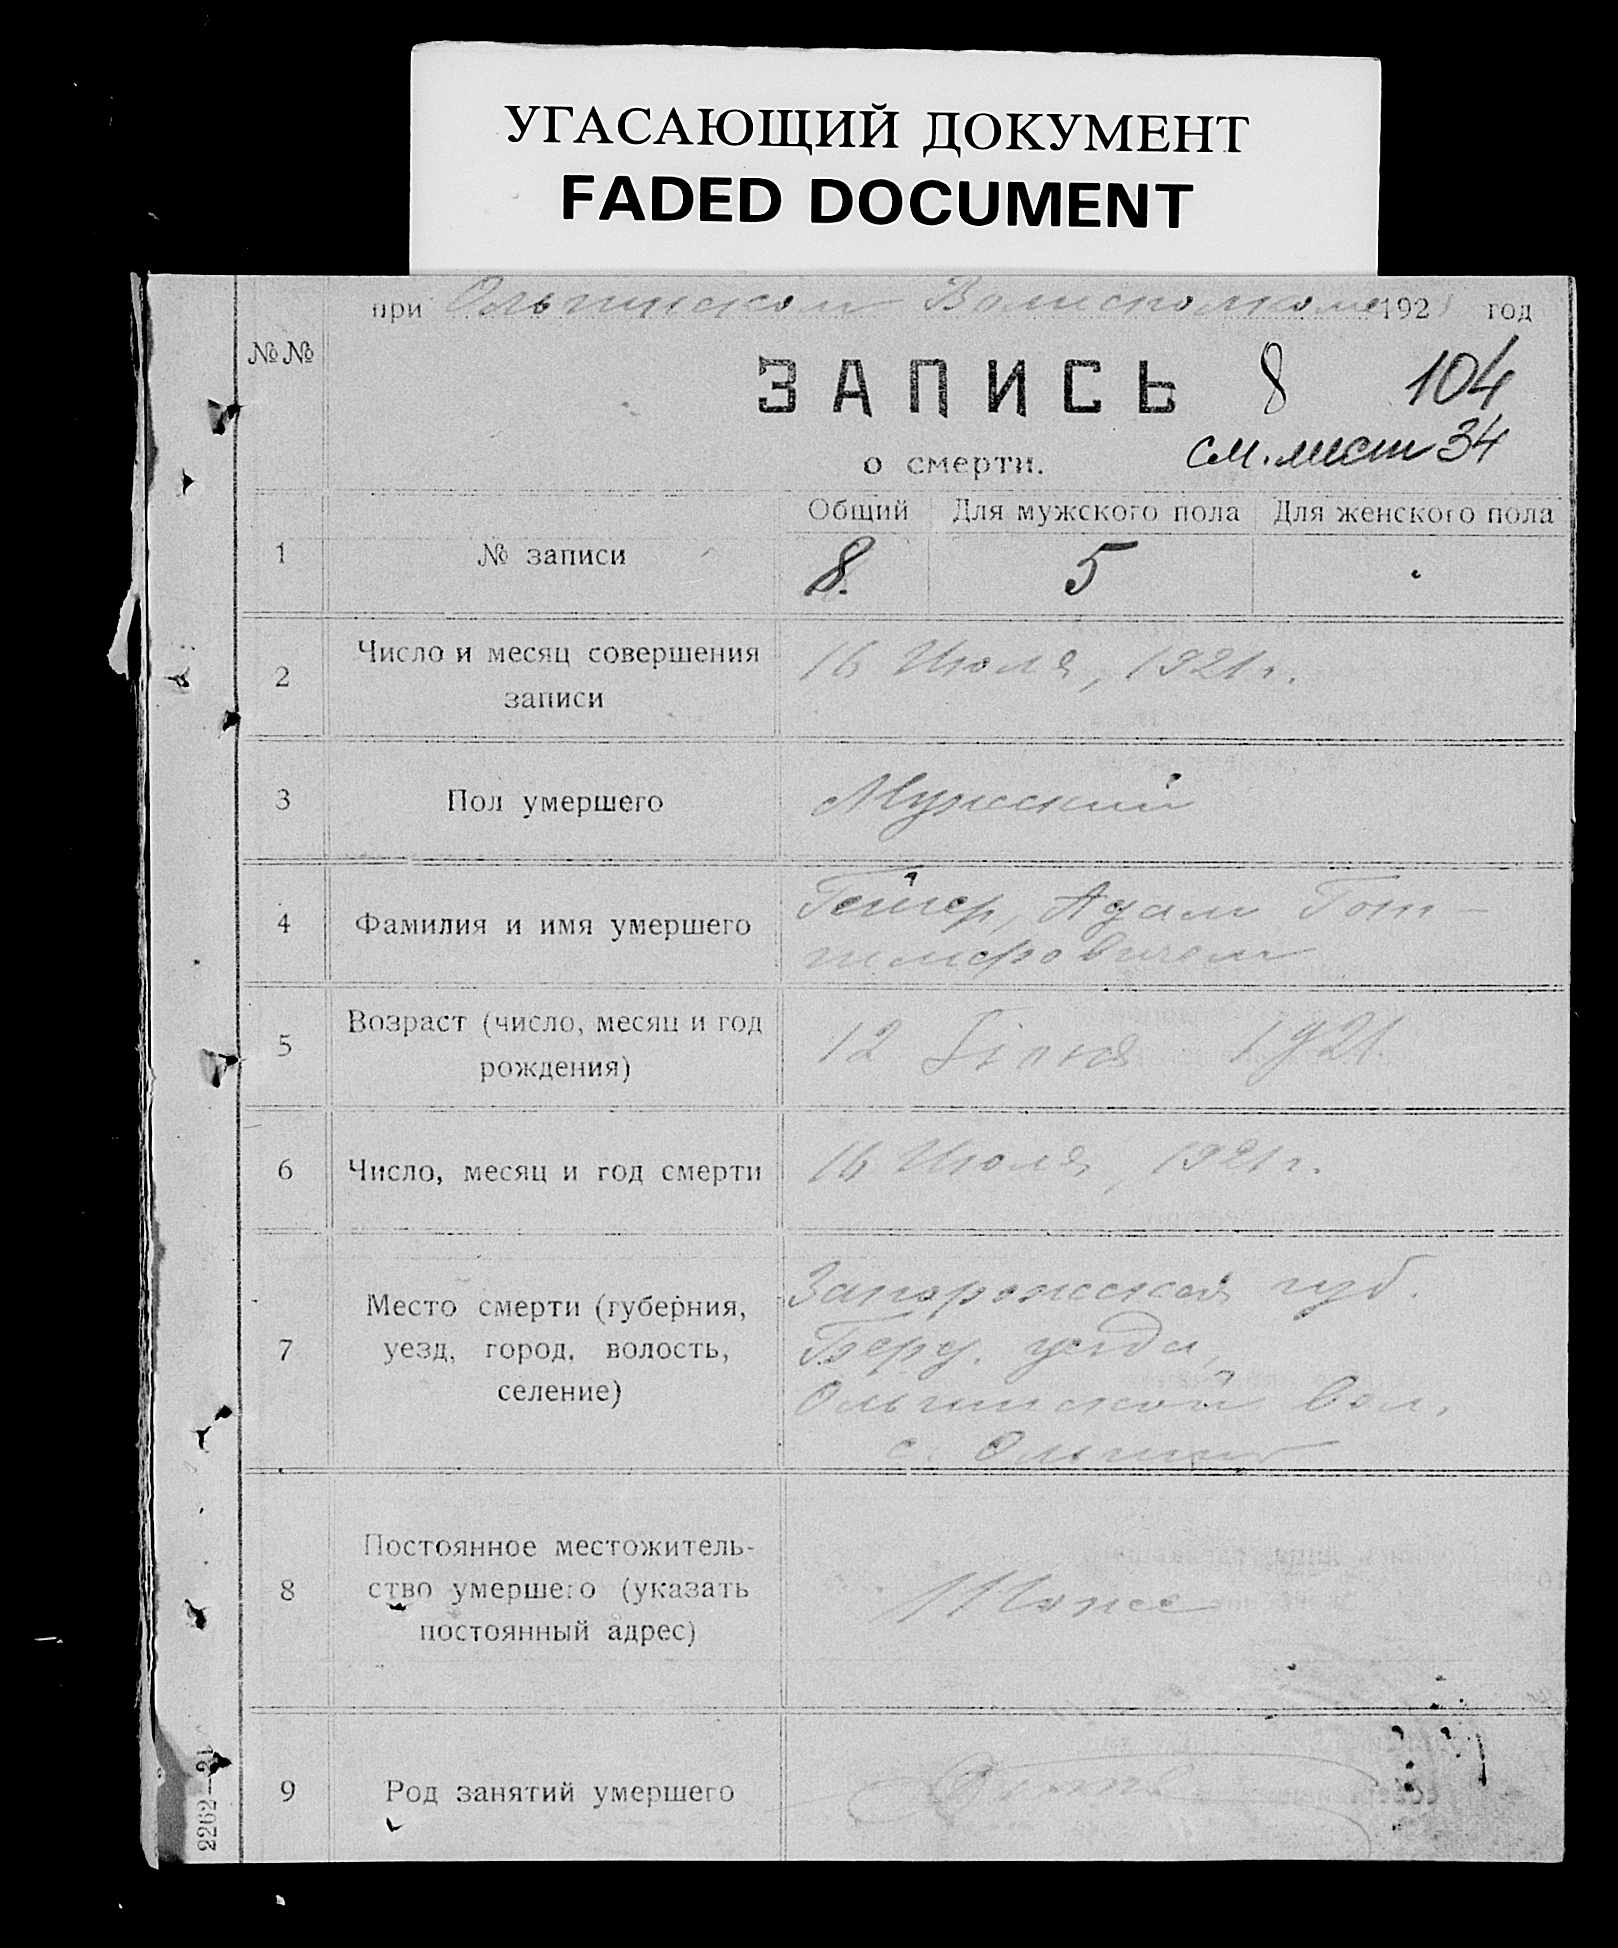 УГАСАЮЩИЙ ДОКУМЕНТ
FADED DOCUMENT
при Ольгинском Волисполкоме 1921 год
№№
ЗАПИСЬ 8 104
о смерти. см. лист 34
Общий Для мужского пола Для женского пола
1 № записи 8. 5
2 Число и месяц совершения 16 Июля, 1921 г.
записи
3 Пол умершего Мужский
4 Фамилия и имя умершего Гейгер, Адам Гот-
5 Возраст (число, месяц и год 12 1921
рождения)
6 Число, месяц и год смерти 16 Июля, 1921 г.
7 Место смерти (губерния, Запорожской губ.
уезд, город, волость, Берд. уезда,
селение) Ольгинской вол.
с.
8 Постоянное местожитель-
ство умершего (указать Тоже
постоянный адрес)
9 Род занятий умершего
2262—21